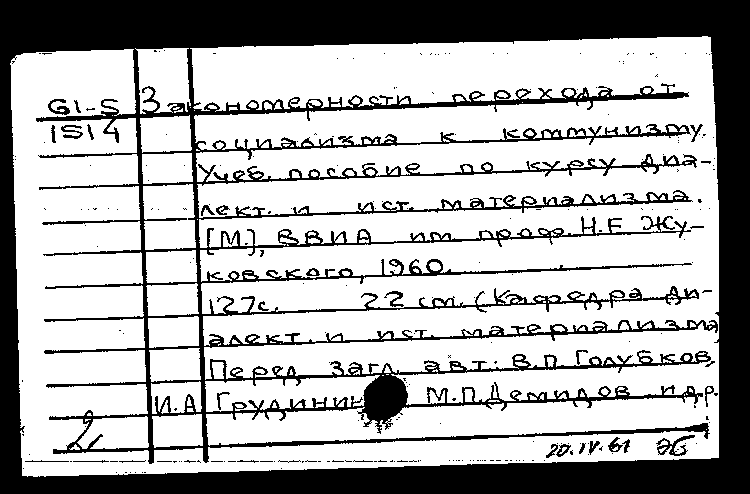 61-5 Закономерности перехода от
1514 социализма к коммунизму.
Учеб. пособие по курсу диа-
лект. и ист. материализма.
[М.], ВВИА им проф. Н.Е Жу-
ковского, 1960.
127с. 22 см. (Кафедра ди-
алект. и ист. материализма)
Перед загл. авт: В.П. Голубков,
И.А Грудинин М.П.Демидов и др.
2
20.IV.61